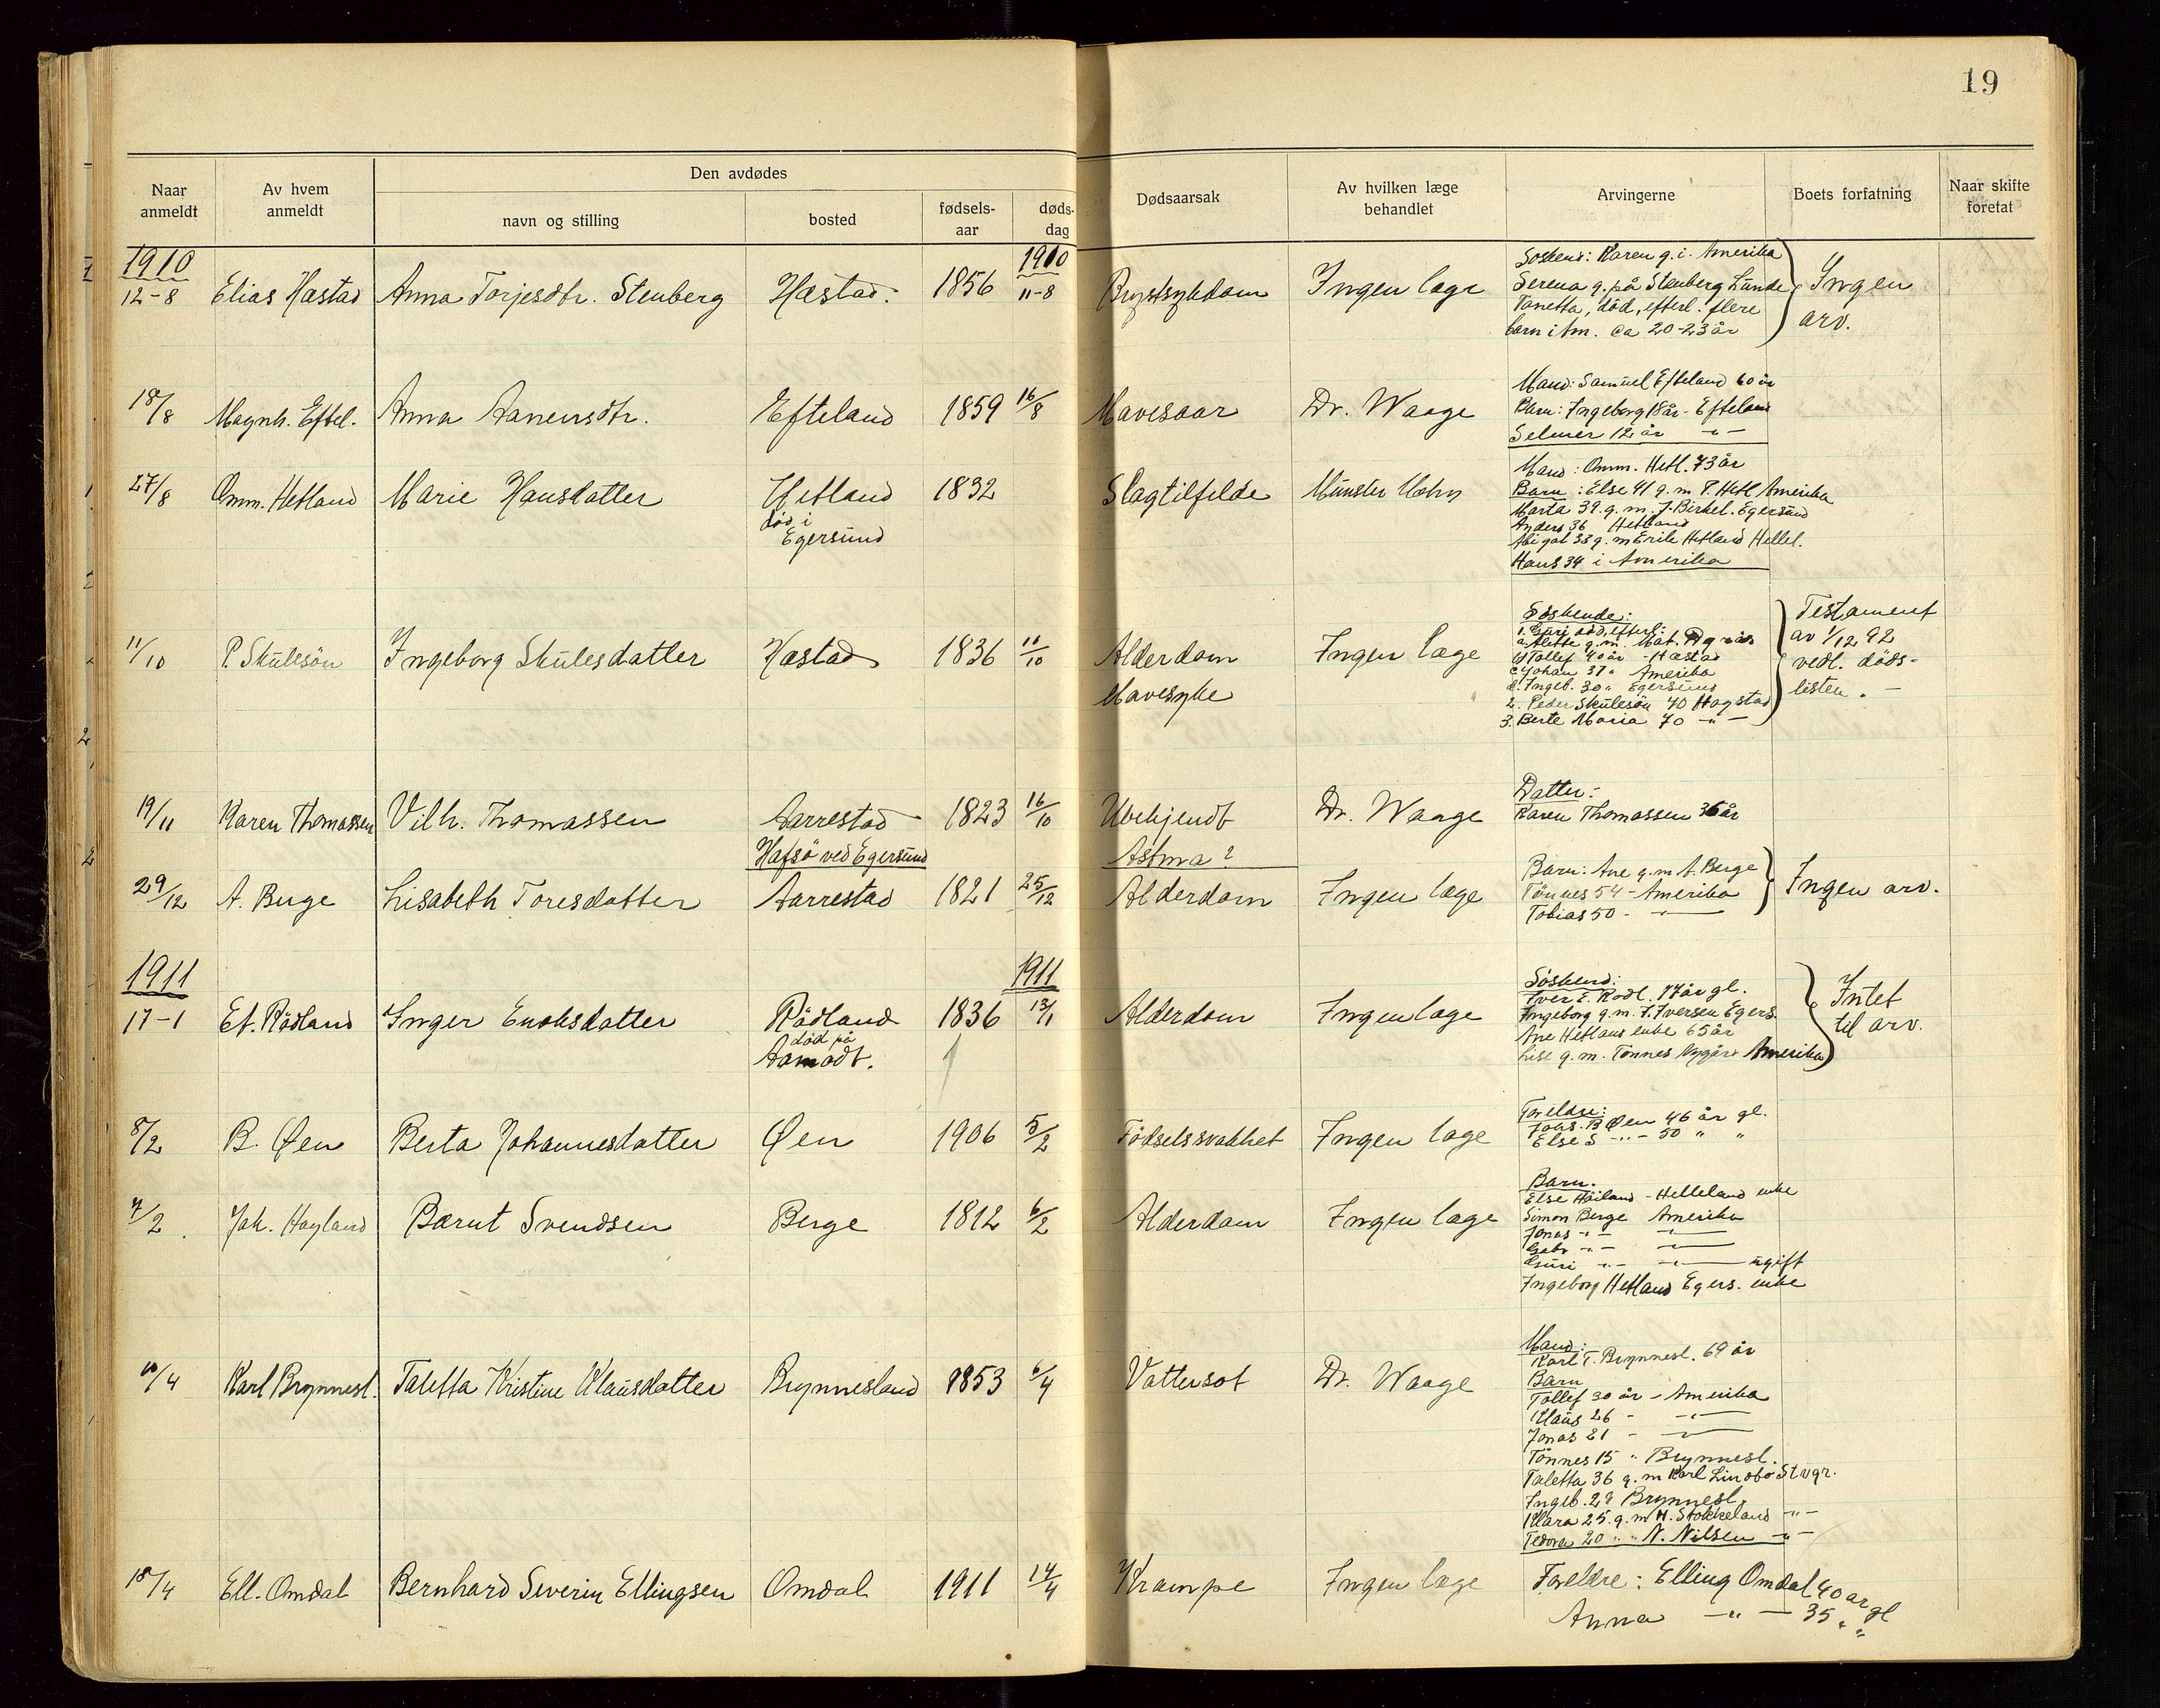 19
Naar anmeldt
Av hvem anmeldt
Den avdødes
navn og stilling
bosted
fødsels-aar
døds-dag
Dødsaarsak
Av hvilken læge behandlet
Arvingerne
Boets forfatning
Naar skifte foretat
1910
1910
12-8 Elias Hæstad Anna Torjesdtr. Stenberg Hæstad. 1856 11-8 Brystsykdom Ingen læge
Søskend: Karen g. i. Amerika
Serena g. på Stenberg Lunde
Tanetta, død, efterl. flere
barn i Am. ca 20-23 år
Ingen
arv.
18/8 Magnh. Eftel. Anna Aanensdtr. Efteland 1859 16/8 Mavesaar Dr. Waage
Mand: Samuel Efteland 60 år
Barn: Ingeborg 18 år - Efteland
Selmer 12 år -"-
27/8 Omm. Hetland Marie Hansdatter Hetland 1832 Slagtilfelde Münster Mohn
død i
Egersund
Mand: Omm. Hetl. 73 år
Barn: Else 41 g. m P. Hetl Amerika
Marta 39. g. m. J. Birkel. Egersund
Anders 36 Hetland
Abigal 33 g. m Erik Hetland Hellel.
Hans 34 i Amerika
11/10 P. Skulesøn Ingeborg Skulesdatter Hæstad 1836 11/10 Alderdom Ingen læge
Mavesyke
Søskende:
1. Guri død, efterl:
a. Alette g. m. Mat.
b) Tollef 40 år - Hæstad
c) Johan 37 " Amerika
d. Ingeb. 30 " Egersund
2. Peder Skulesøn 70 Hæstad
3. Berte Maria 70 -"-
Testament
av 1/12 92
vedl. døds-
listen. -
19/11 Karen Thomassen Vilh. Thomassen Aarrestad 1823 16/10 Ubekjendt Dr. Waage
Hafsø ved Egersund
Astma?
Datter:
Karen Thomassen 36 år
29/12 A. Berge Lisabeth Toresdatter Aarrestad 1821 25/12 Alderdom Ingen læge
Barn: Ane g. m A. Berge
Tønnes 54 - Amerika
Tobias 50 - -"-
Ingen arv.
1911
1911
17-1 Et. Rødland Inger Enoksdatter Rødland 1836 13/1 Alderdom Ingen læge
død på
Aamodt.
Søskend:
Iver E. Rødl. 77 år gl.
Ingeborg g. m. J. Iversen Egers.
Ane Hetland enke 65 år
Lise g. m. Tønnes Nygård Amerika
Intet
til arv.
8/2 B. Øen Berta Johannesdatter Øen 1906 5/2 Fødselssvakhet Ingen læge
Foreldre:
Johs. B Øen 46 år gl.
Else S -"- 50 " "
7/2 Joh. Høyland Bærnt Svendsen Berge 1812 6/2 Alderdom Ingen læge
Barn.
Else Høiland - Helleland enke
Simon Berge Amerika
Jonas -"- -"-
Gabr -"- -"-
Guri -"- -"- ugift
Ingeborg Hetland Egers. enke
10/4 Karl Brynnesl. Taletta Kristine Klausdatter Brynnesland 1853 6/4 Vattersot Dr. Waage
Mand:
Karl T. Brynnesl. 69 år
Barn
Tollef 30 år - Amerika
Klaus 26 - -"-
Jonas 21 - -"-
Tønnes 15 " Brynnesl.
Taletta 36 g. m Karl Lindbo Stvgr.
Ingeb. 28 Brynnesl.
Klara 25. g. m H. Stokkeland -"-
Tedora 20 " " N. Nilsen -"-
18/4 Ell. Omdal Bernhard Severin Ellingsen Omdal 1911 14/4 Krampe Ingen læge
Foreldre: Elling Omdal 40 år gl
Anna -"- 35 " "